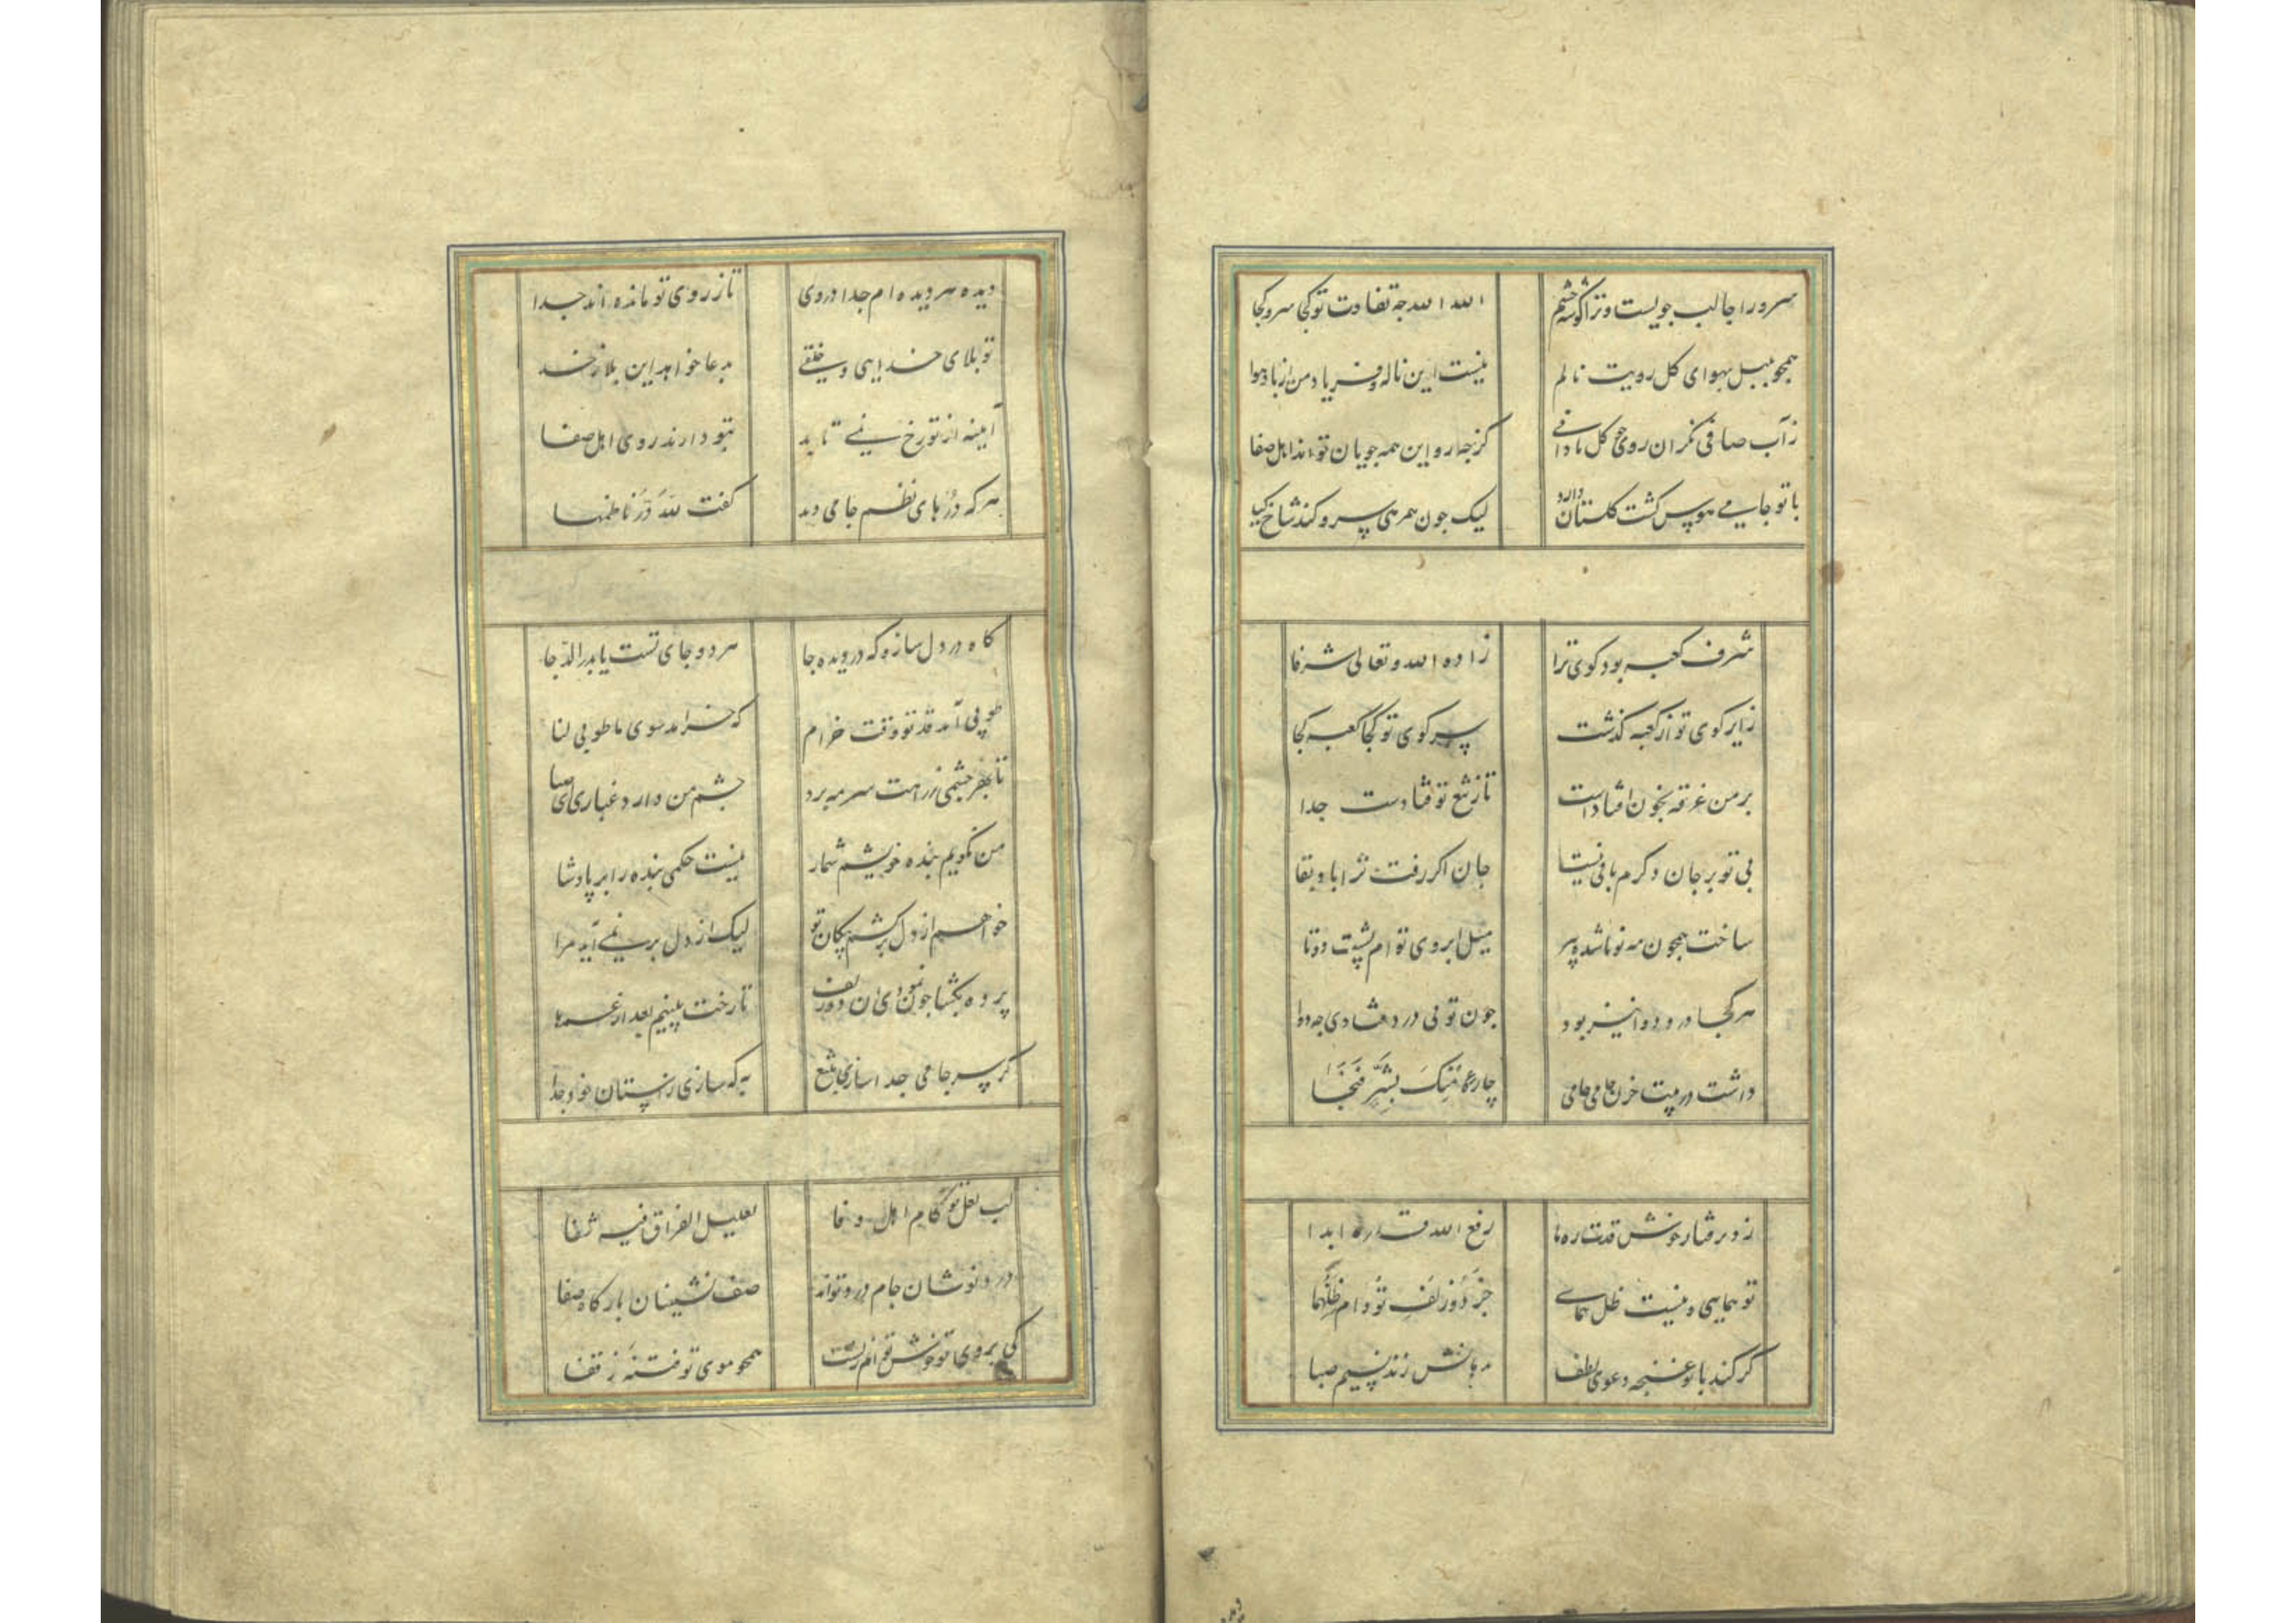 سرو را جا لب جویست و ترا گوشه چشم
الله الله چه تفاوت تو کجا سرو کجا
همچو بلبل بهوای گل رویت نالم
نیست این ناله و فریاد من از باد هوا
ز آب صافی نگران روی گل ما دانی
کز چه رو این همه جویان تواند اهل صفا
با تو جامی هوس گشت گلستان دارد
لیک چون همرهی سرو کند شاخ گیا
شرف کعبه بود کوی ترا
زاده الله و تعالی شرفا
زایر کوی تو از کعبه گذشت
سر کوی تو کجا کعبه کجا
بر من غرقه بخون افتادست
تا ز تیغ تو فتادست جدا
بی تو بر جان دگرم باقی نیست
جان اگر رفت ترا باد بقا
ساخت همچون مه نو ناشده پیر
میل ابروی توام پشت دوتا
هر کجا درد دوا نیز بود
چون تویی درد فتادی چه دوا
داشت در بیت حزن جامی جای
جاء منک بشیر فنجا
زد برفتار خوش قدت ره ما
رفع الله قدره ابدا
تو همایی و نیست ظل همای
جز دو زلف تو دام ظلهما
گر کند با تو غنچه دعوی لطف
بدهانش زند نسیم صبا
دیده هر دیده‌ام جدا دروی
تا ز روی تو مانده‌اند جدا
تو بلای خدایی و خلقی
بدعا خواهد این بلا ز خدا
آینه از تو رخ نمی تابد
بتو دارند روی اهل صفا
هر که درهای نظم جامی دید
گفت لله در ناظمها
گاه در دل ساز و گه در دیده جا
هر دو جای تست یا بدر الدجا
طوبی آمد قد تو وقت خرام
گه خرامد سوی ما طوبی لنا
تا بهر چشمی ز راهت سرمه برد
چشم من دارد غباری ای صبا
من نگویم بنده خویشم شمار
نیست حکمی بنده را بر پادشا
خواهم از دل برکشم پیکان تو
لیک از دل بر نمی آید مرا
پرده بگشا چون نمودی آن دو زلف
تا رخت بینیم بعد از عمرها
گر سر جامی جدا سازی بتیغ
به که سازی ز آستان خود جدا
لب لعل تو کام اهل وفا
لعلیل الفراق فیه شفا
درد نوشان جام درد تواند
صف نشینان بارگاه صفا
کی بروی تو خوش توانم زیست
همچو موی تو فتنه ز قفا